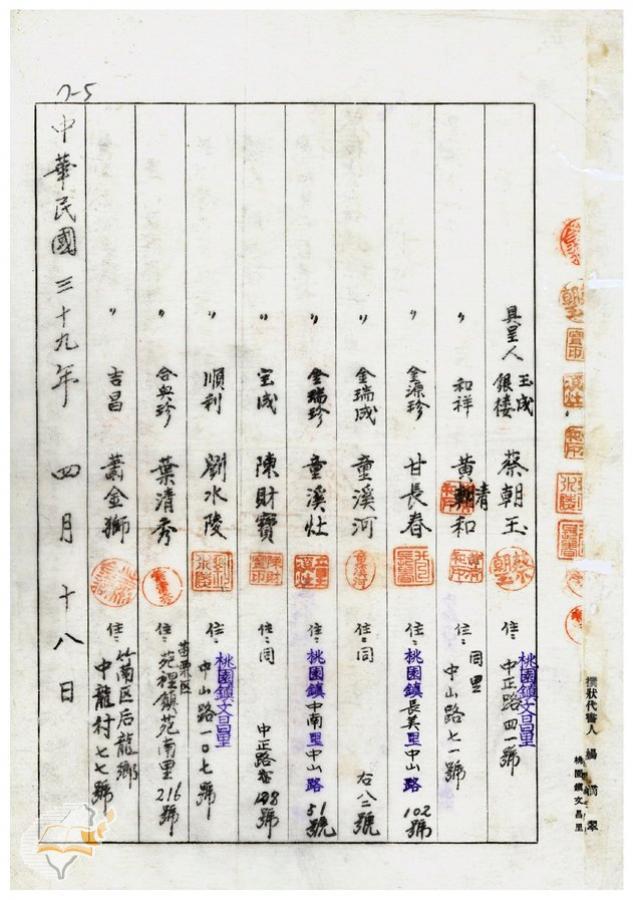 具呈人 玉成銀楼 蔡朝玉 住：桃園鎮文昌里中正路四一號
〃 和祥 黃清和 住：同里中山路七一號
〃 金源珍 甘長春 住：桃園鎮長美里中山路102號
〃 金瑞成 童溪河 住：同 右八二號
〃 金瑞珍 童溪灶 住：桃園鎮中南里中山路51號
〃 宝成 陳財寶 住：同 中正路108號
〃 順利 劉水陵 住：桃園鎮文昌里中山路一0七號
〃 合興珍 葉清秀 住：苗栗区苑裡鎮苑南里216號
〃 吉昌 蕭金獅 住：竹南区后龍鄉中龍村七七號
中華民國三十九年 四月十八日
7-5
撰狀代書人 楊
桃園鎮文昌里